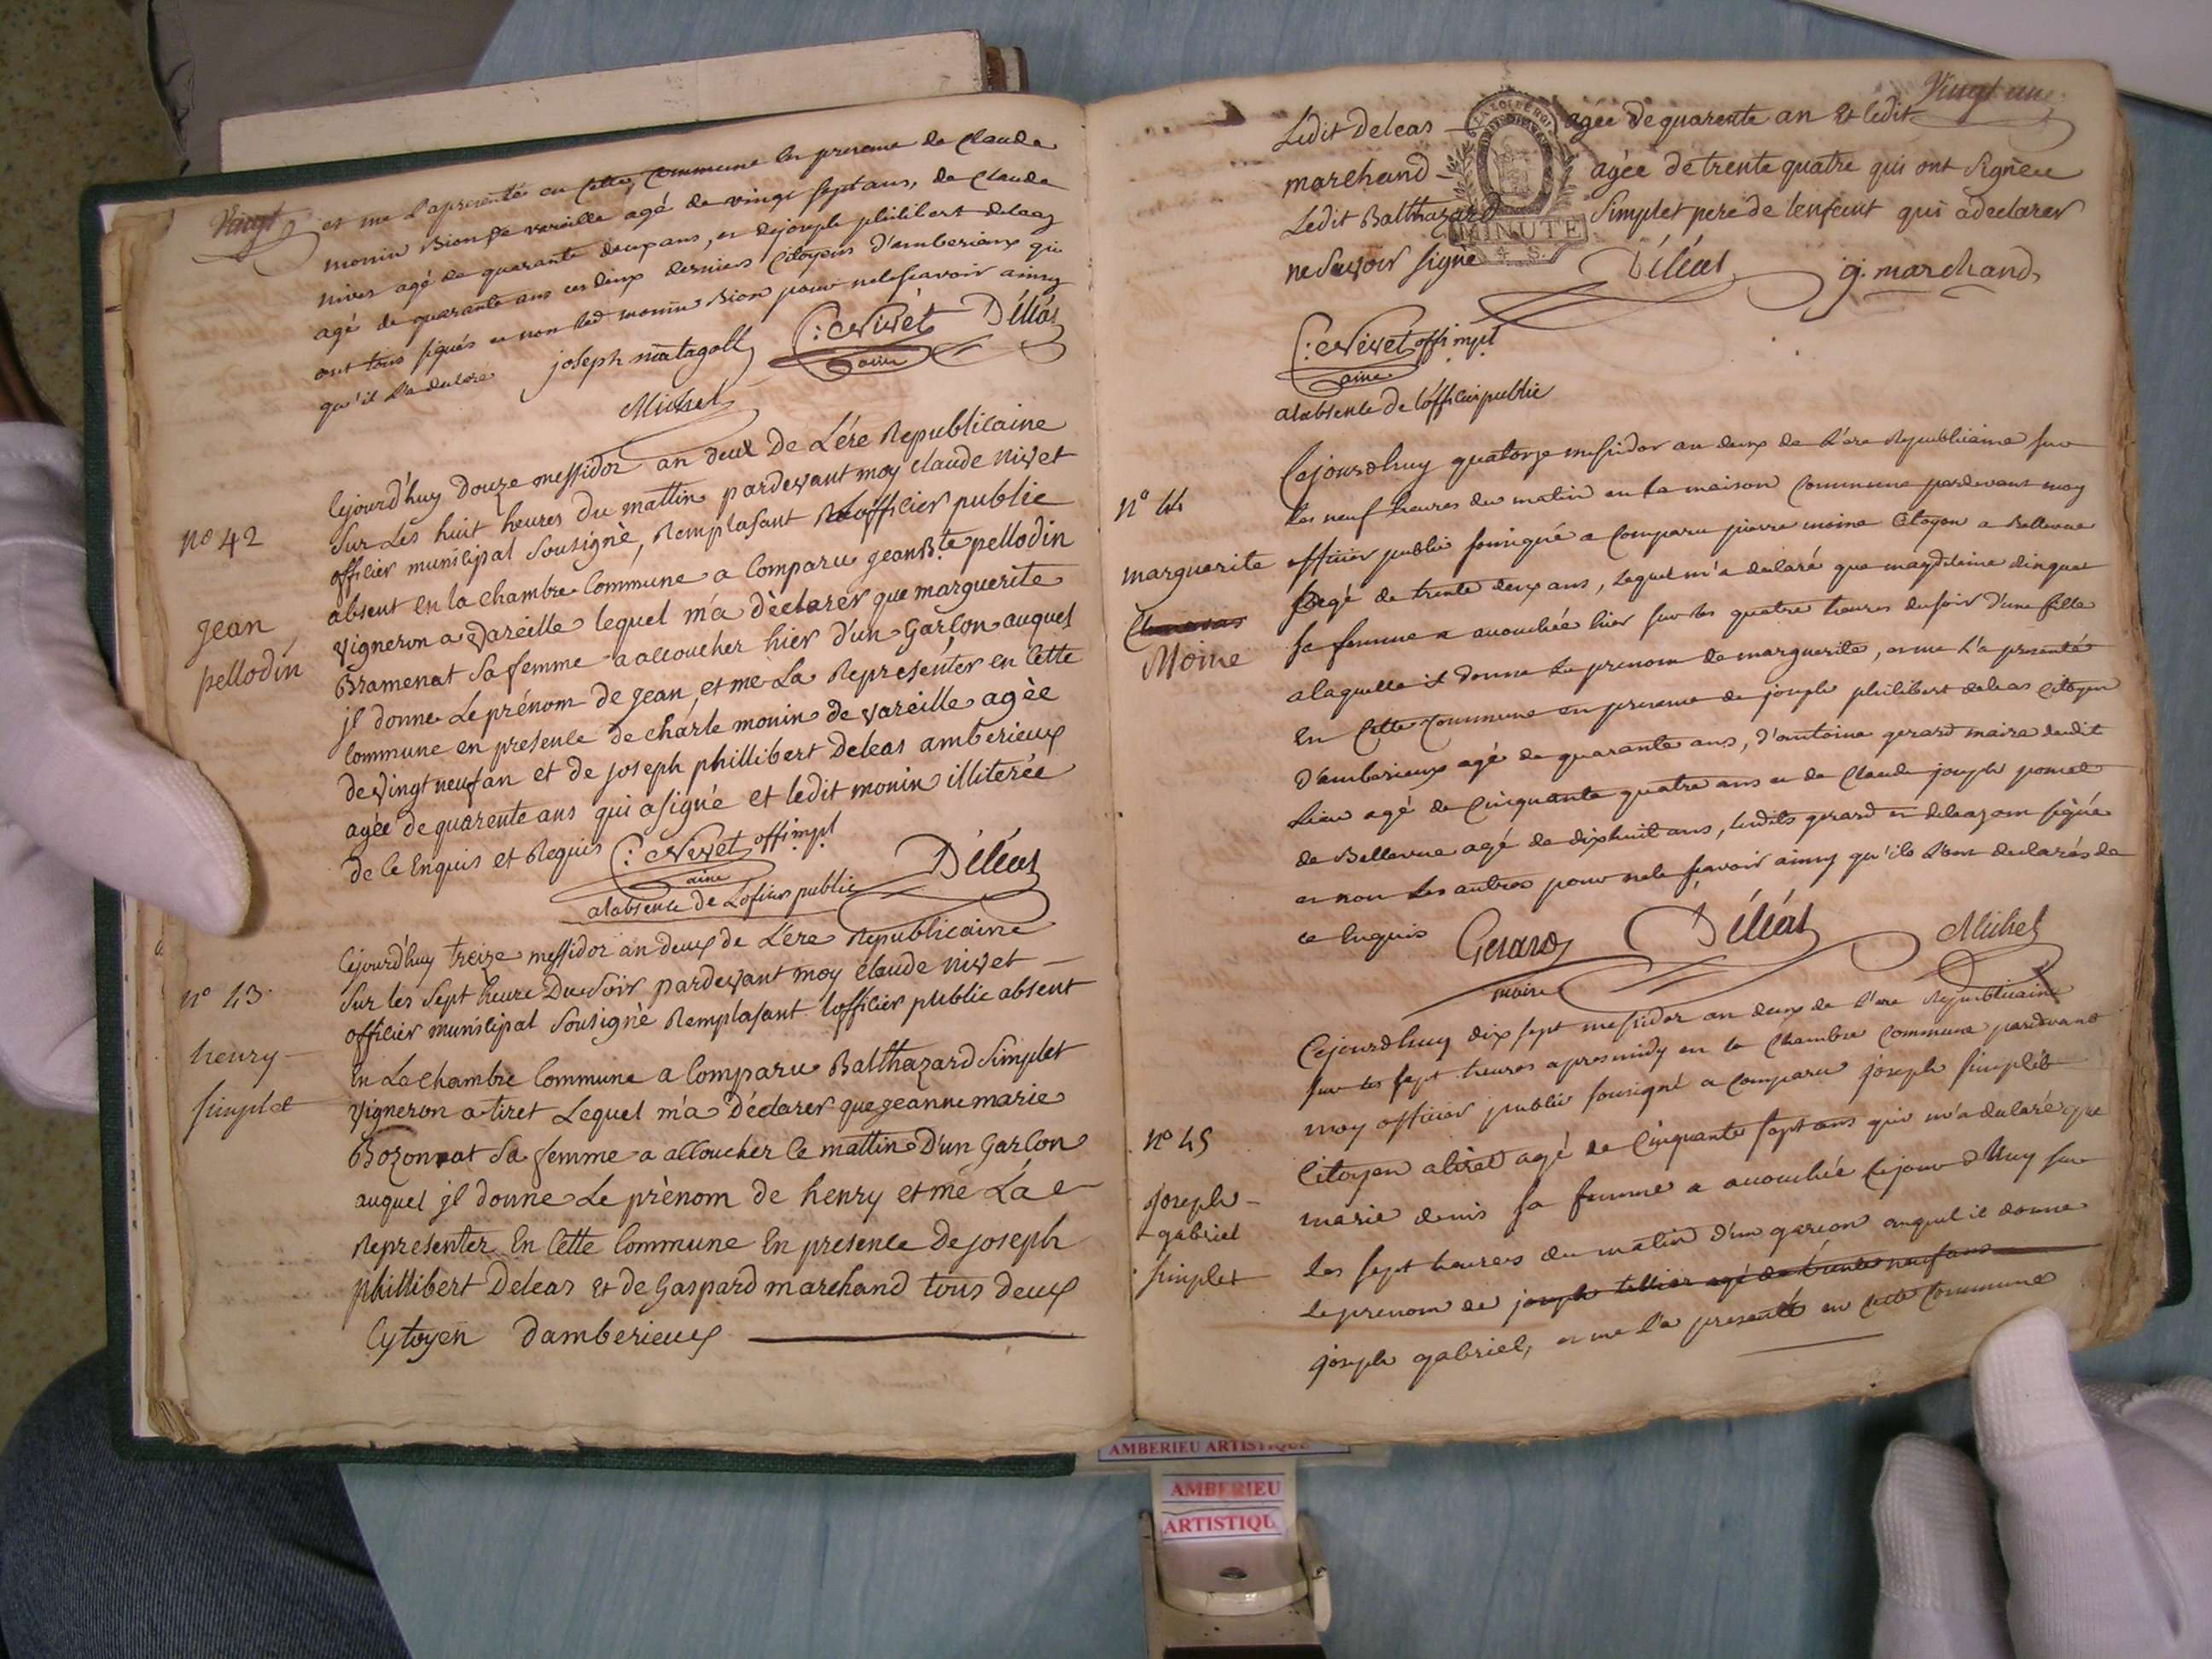 Vingt
et me l'a presenté en cette commune en presence de Claude
monin Bion de vareille agé de vingt sept ans, de Claude
nivet agé de quarante deux ans, et de joseph philibert deleaz
agé de quarante ans ces deux derniers Citoyens d'amberieux qui
ont tous signés et non led monin Bion pour ne le sçavoir ainsy
qu'il l'a declaré
joseph matagolly C: Nivet Déléas
ainé
Michel
n° 42
jean
pellodin
Cejourd'huy douze messidor an deux De L'ére Republicaine
Sur Les huit heures du mattin pardevant moy Claude nivet
officier municipal Sousignè, Remplasant L'officier public
absent En la chambre Commune a Comparu jean B.te pellodin
vigneron a Vareille lequel m'a dèclarer que marguerite
Bramenat Sa femme a accoucher hier d'un Garçon auquel
jl donne Le prénom de jean, et me La Representer en Cette
Commune en presence de charle monin de vareille agèe
de vingt neuf an et de joseph phillibert Deleas amberieux
agée de quarente ans qui a signé et ledit monin illiterée
de Ce Enquis et Requis
C: Nivet offi mpl Déléas
ainé
alabsence de Loficier public
n° 43
henry
simplet
Cejourd'huy treize messidor an deux de L'ére Republicaine
Sur les Sept heure Du Soir pardevant moy claude nivet
officier municipal Sousignè Remplasant l'officier public absent
En La chambre Commune a Comparu Balthazard Simplet
vigneron a tiret Lequel m'a Déclarer que jeanne marie
Bozonnat Sa femme a accoucher Ce mattin D'un Garcon
auquel jl donne Le prènom de henry et me La
Representer En Cette Commune En presence De joseph
phillibert Deleas Et de Gaspard marchand tous deux
Cytoyen Damberieux
Vingt un
Ledit Deleas agée de quarente an Et ledit
marchand agée de trente quatre qui ont signeu
Ledit Balthazard Simplet pere de l'enfeint qui a declarer
ne Savoir signé
LA LOI LE ROI
MINUTE
4 S.
Déléas g. marchand
C: Nivet offi mpl
ainé
alabsence de l'officier public
n° 44
marguerite
Moine
Cejourdhuy quatorze messidor an deux de l'ere Republicaine sur
les neuf heures du matin en la maison Commune pardevant moy
officier public sousigné a Comparu pierre moine Citoyen a Bellevue
agé de trente deux ans, lequel m'a declaré que magdelaine dinguet
sa femme a accouchée hier sur les quatre heures du soir d'une fille
a laquelle il donne le prenom de marguerite, et me l'a presenté
En Cette Commune en presence de joseph philibert deleas Citoyen
d'amberieux agé de quarante ans, d'antoine gerard maire dudit
lieu agé de Cinquante quatre ans et de Claude joseph poncet
de Bellevue agé de dixhuit ans, lesdits gerard et deleaz ont signé
et non les autres pour ne le sçavoir ainsy qu'ils l'ont declarés de
ce Enquis
Gerard Déléas Michel
maire
n° 45
joseph
gabriel
simplet
Cejourdhuy dix sept messidor an deux de l'ere Republicaine
sur les sept heures apres midy en la Chambre Commune pardevant
moy officier public sousigné a Comparu joseph simplet
Citoyen a tiret agé de Cinquante sept ans qui m'a declaré que
marie denis sa femme a accouchée Cejour d'huy sur
les sept heures du matin d'un garcon auquel il donne
le prenom de joseph tellier agé de trente neuf ans
joseph gabriel, et me l'a presenté en Cette Commune
AMBERIEU ARTISTIQUE
AMBERIEU
ARTISTIQU